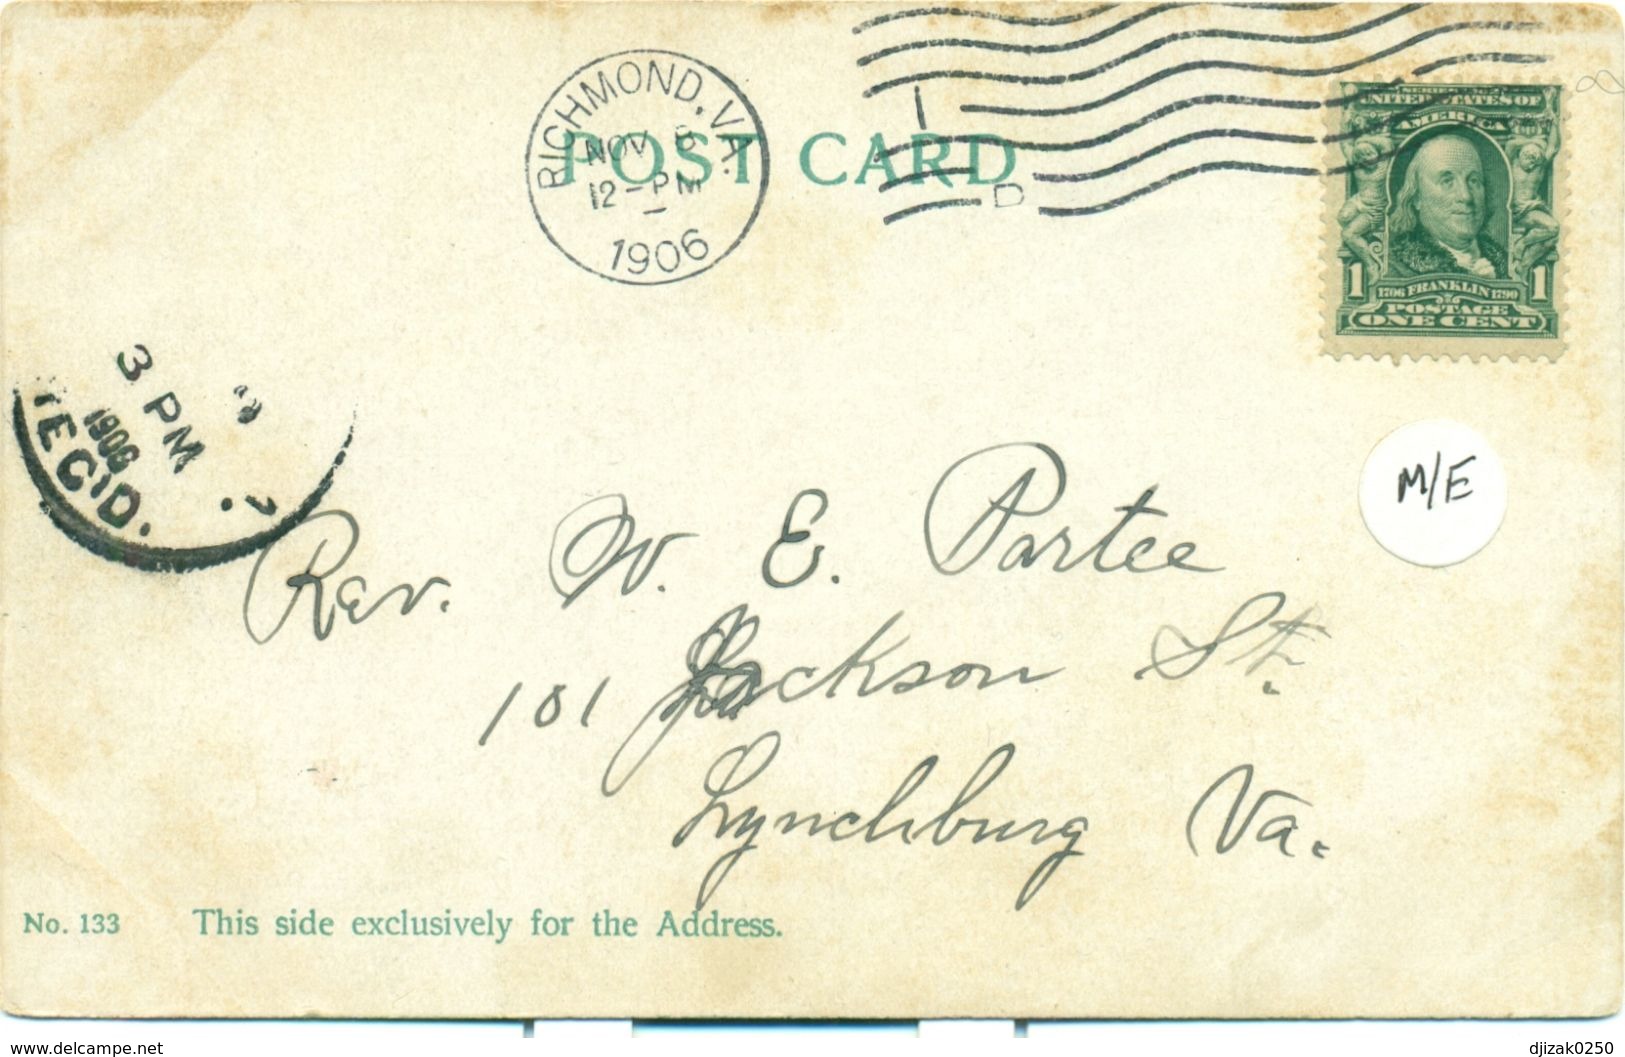 RICHMOND, VA.
NOV 6
12-PM
1906
1
D
POST CARD
SERIES 1902
UNITED STATES OF
AMERICA
1 1
1706 FRANKLIN 1790
POSTAGE
ONE CENT
3 PM
1906
REC'D.
M/E
Rev. W. E. Partee
101 Jackson St.
Lynchburg Va.
No. 133 This side exclusively for the Address.
www.delcampe.net djizak0250